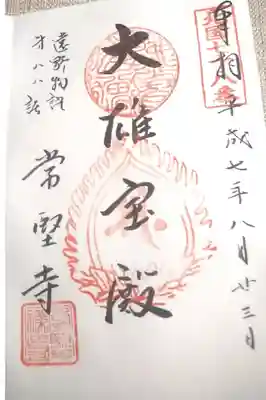 奉拝
平成七年八月廿三日
大雄宝殿
遠野物語
才八八話
常堅寺